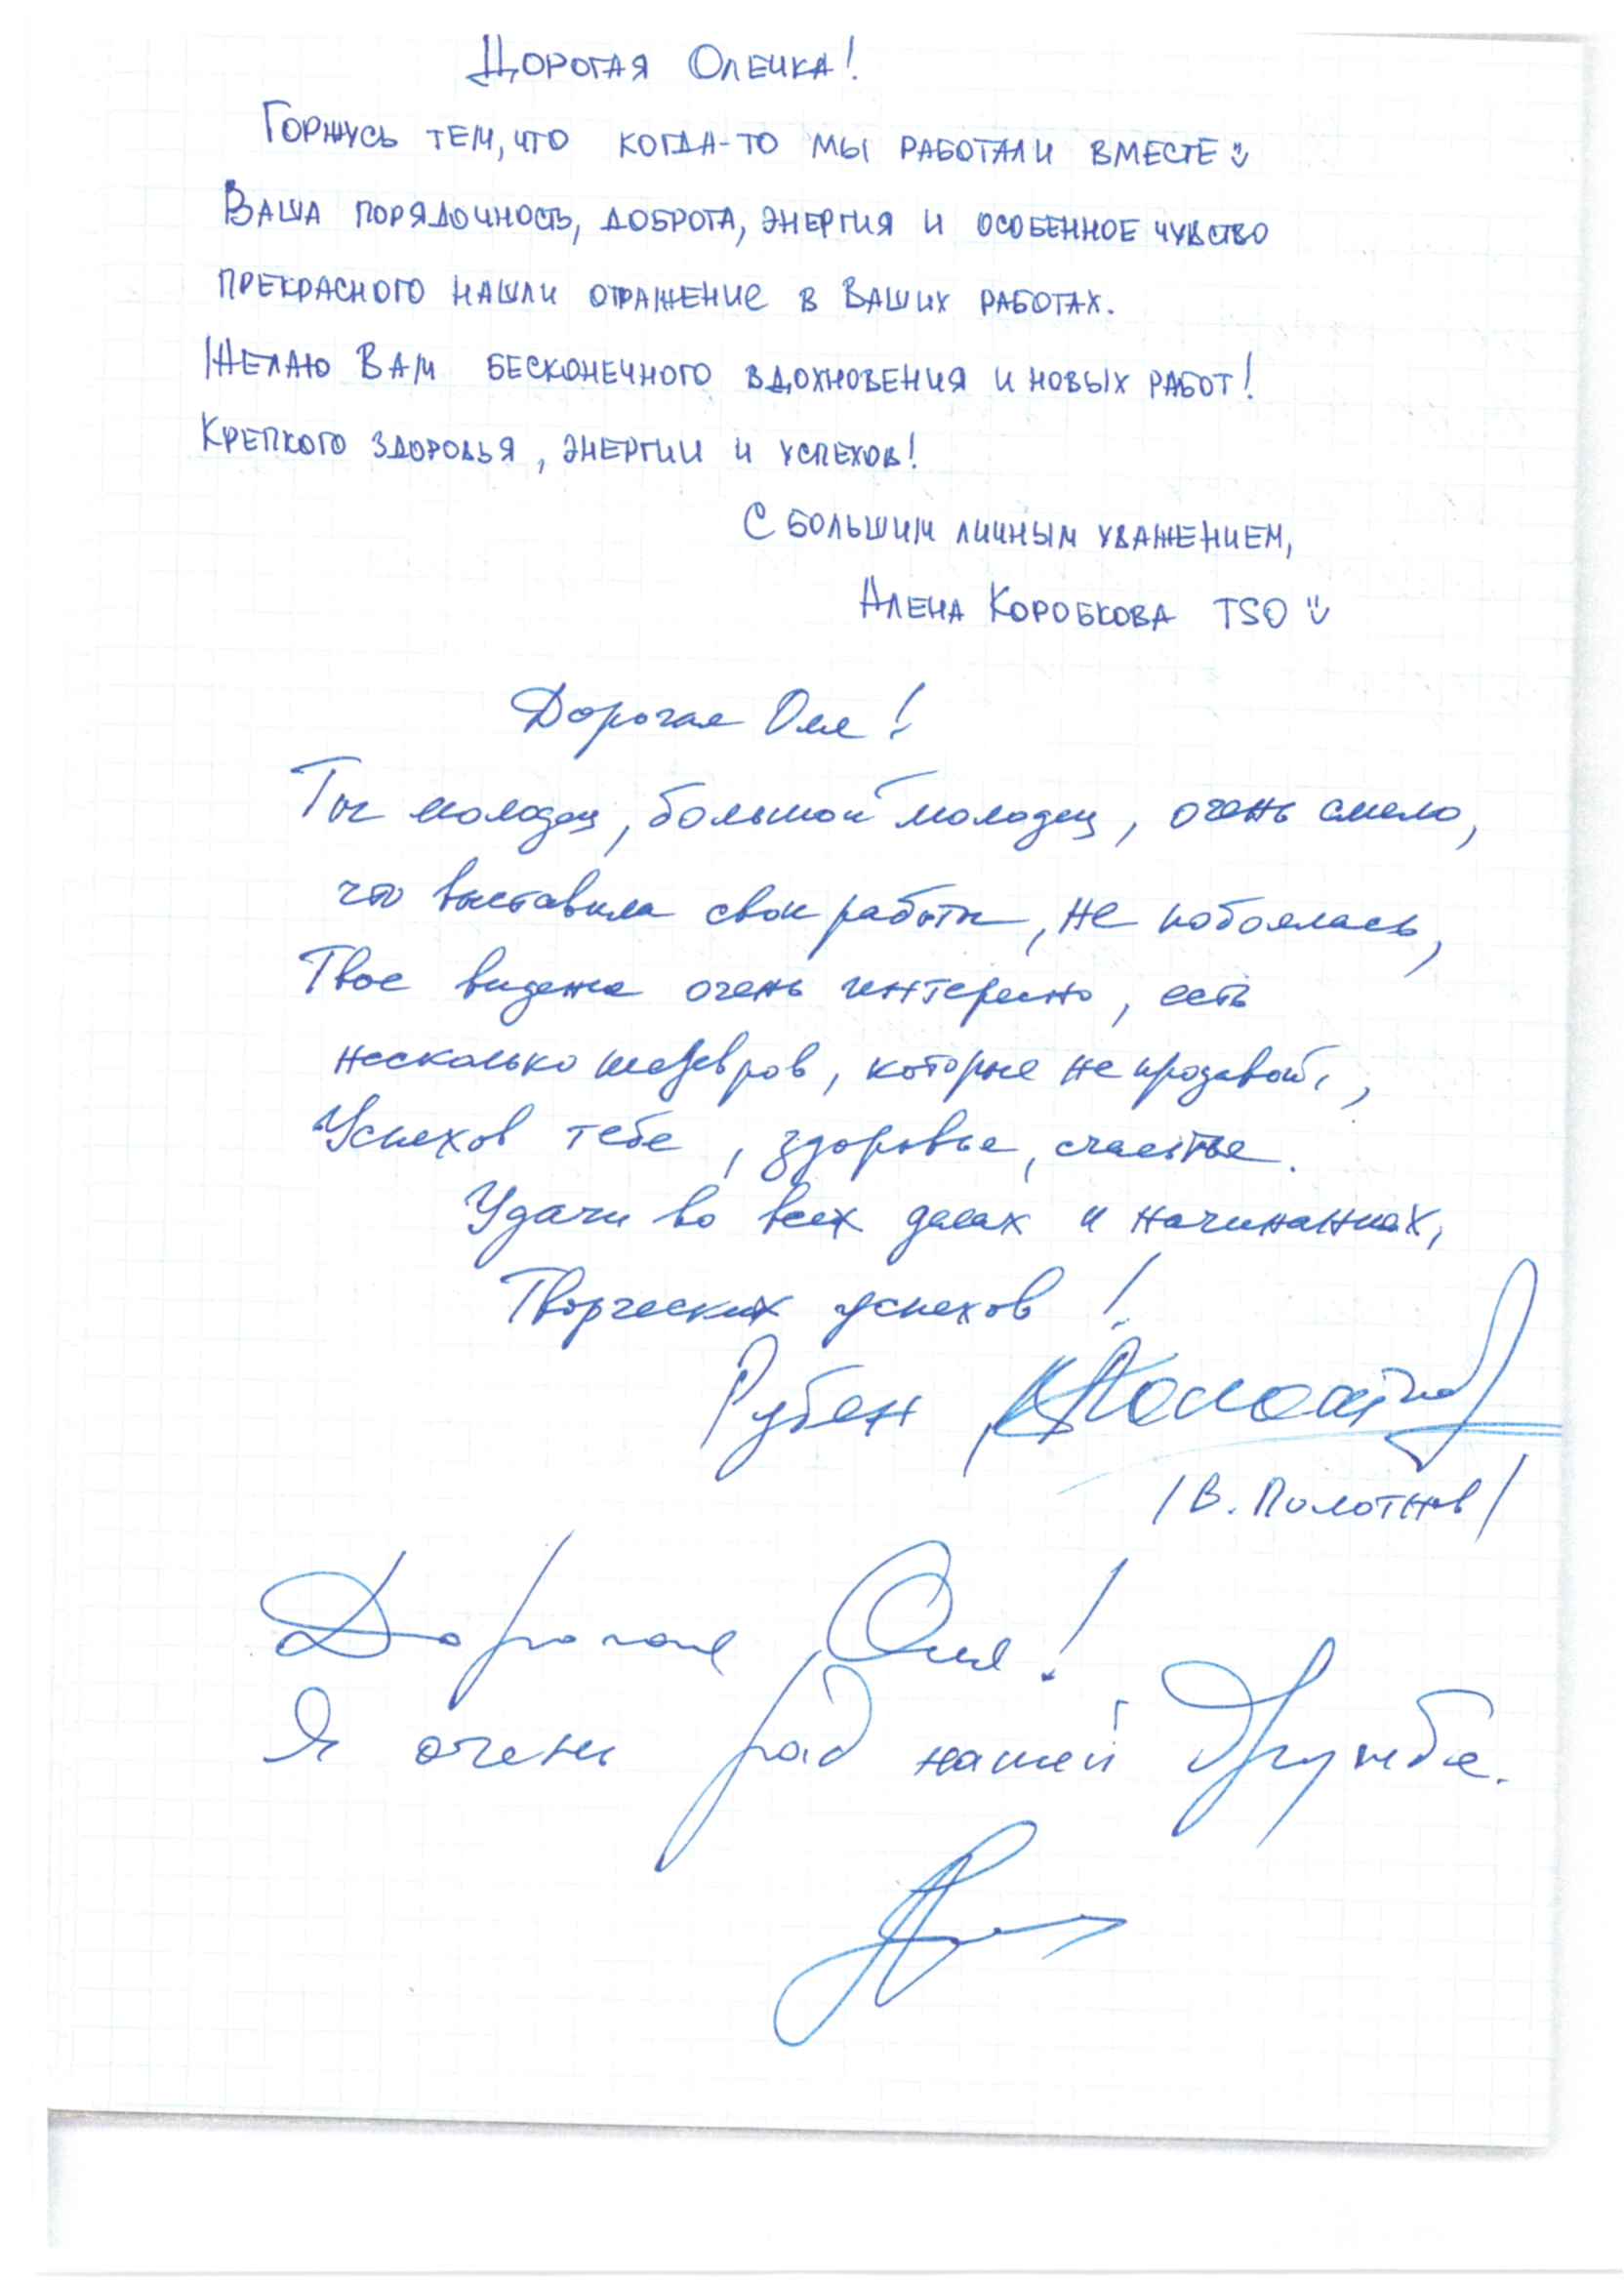 Дорогая Олечка!
Горжусь тем, что когда-то мы работали вместе
Ваша порядочность, доброта, энергия и особенное чувство
прекрасного нашли отражение в Ваших работах.
Желаю Вам бесконечного вдохновения и новых работ!
Крепкого здоровья, энергии и успехов!
С большим личным уважением,
Алена Коробкова TSO
Дорогая Оля!
Ты молодец, большой молодец, очень смело,
что выставила свои работы, не побоялась,
Твое видение очень интересно, есть
несколько шедевров, которые не продавай,
Успехов тебе, здоровье, счастье.
Удачи во всех делах и начинаниях,
Творческих успехов!
Рубен
/В. Полотнов/
Дорогая Оля!
Я очень рад нашей дружбе.